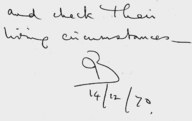 and check their
living circumstances—
14/12/70.